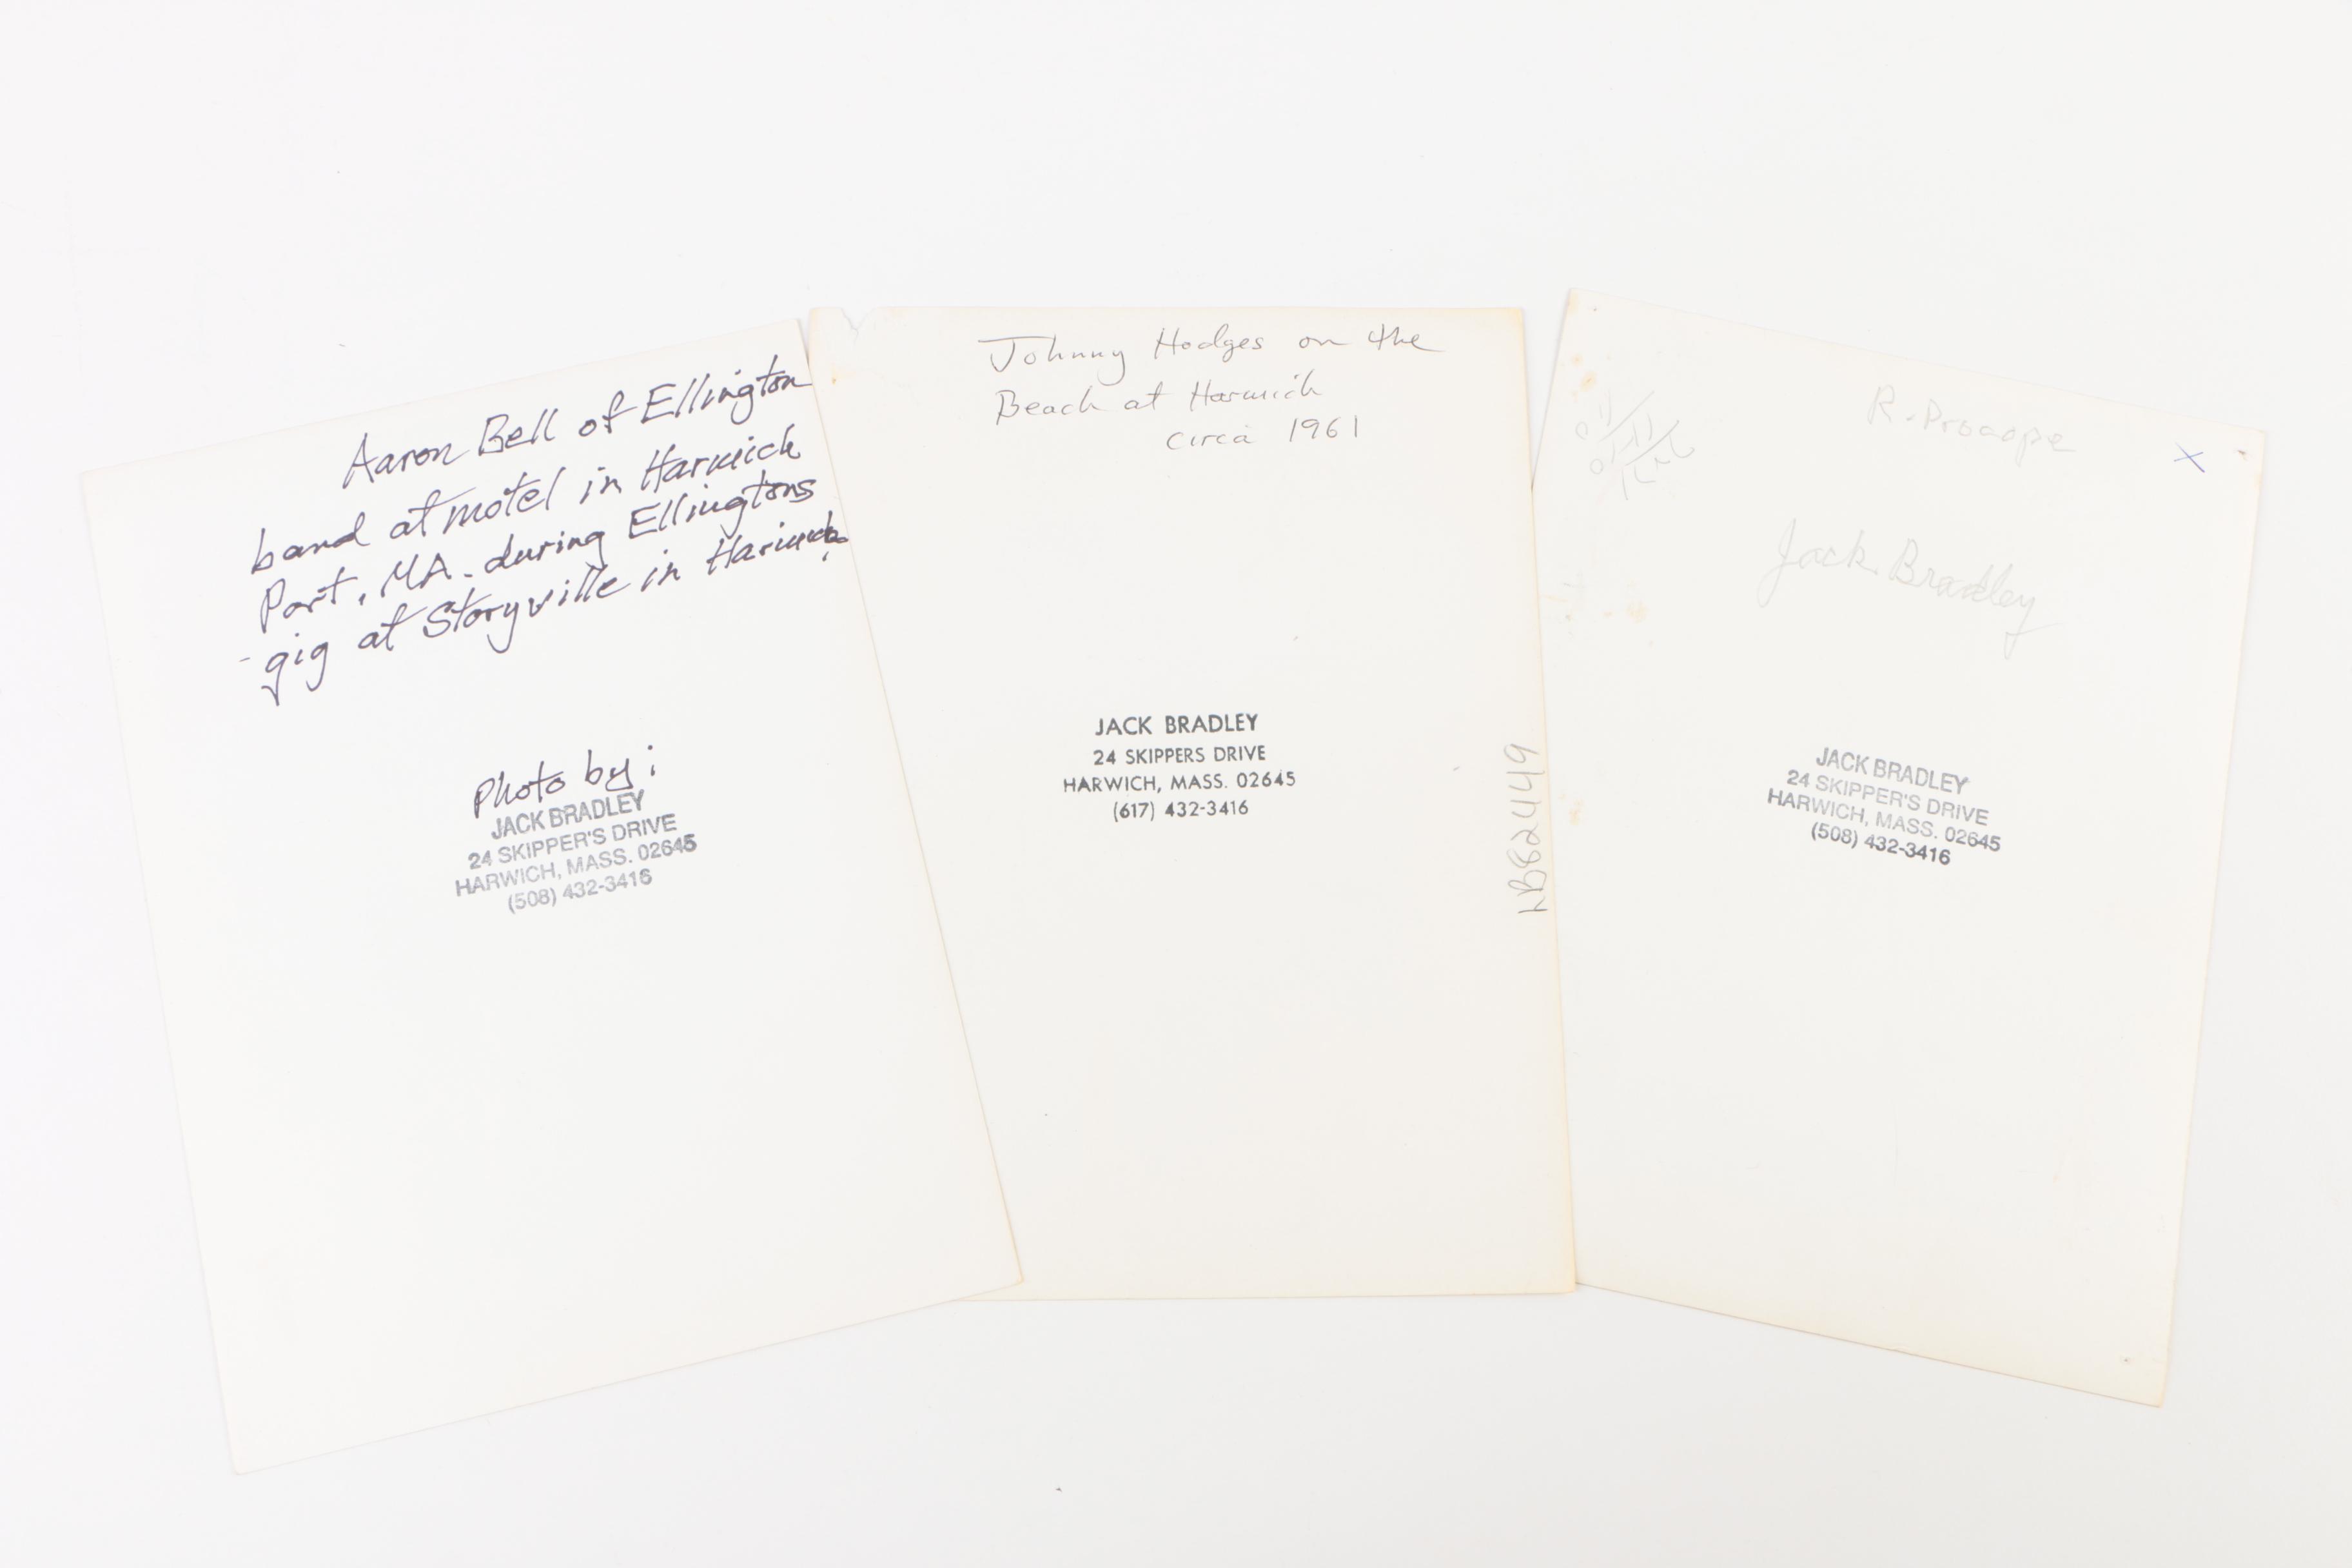 Aaron Bell of Ellington
band at motel in Harwich
Port, MA. during Ellingtons
gig at Storyville in Harwich.
Photo by:
JACK BRADLEY
24 SKIPPER'S DRIVE
HARWICH, MASS. 02645
(508) 432-3416
Johnny Hodges on the
Beach at Harwich
circa 1961
JACK BRADLEY
24 SKIPPERS DRIVE
HARWICH, MASS. 02645
(617) 432-3416
R. Procope
X
Jack Bradley
JACK BRADLEY
24 SKIPPER'S DRIVE
HARWICH, MASS. 02645
(508) 432-3416